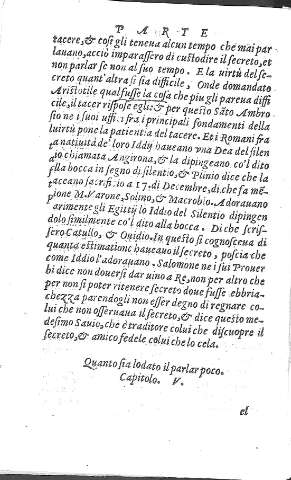 PARTE
tacere, & così gli teneua alcun tempo che mai par
lauano, acciò imparassero di custodire il secreto, et
non parlar se non al suo tempo. E la uirtù del se-
creto quant'altra si sia difficile, Onde domandato
Aristotile qual fusse la cosa che piu gli pareua diffi
cile, il tacer rispose egli: & per questo Santo Ambro
sio ne i suoi uffici fra i principali fondamenti della
uirtù pone la patientia del tacere. Et i Romani fra
la natiuità de' loro Iddij haueano una Dea del silen
chiamata Angirona, & la dipingeano co'l dito
alla bocca in segno di silentio, & Plinio dice che la
sacrificio a 17. di Decembre, di che fa mé-
pione M. Varone, Solino, & Macrobio. Adorauano
arimente gli Egittij lo Iddio del Silentio dipingen
dolo similmente co'l dito alla bocca. Di che scris-
sero Catullo, & Ouidio. In questo si cognosceua di
quanta estimatione haueano il secreto, poscia che
come Iddio l'adorauano. Salomone ne i suoi Prouer
bi dice non douersi dar uino a Re, non per altro che
per non si poter ritenere secreto doue fusse ebbria-
chezza parendogli non esser degno di regnare co-
lui che non osseruaua il secreto, & dice questo me-
desimo Sauio, che è traditore colui che discuopre il
secreto, & amico fedele colui che lo cela.
Quanto sia lodato il parlar poco.
Capitolo. V.
el